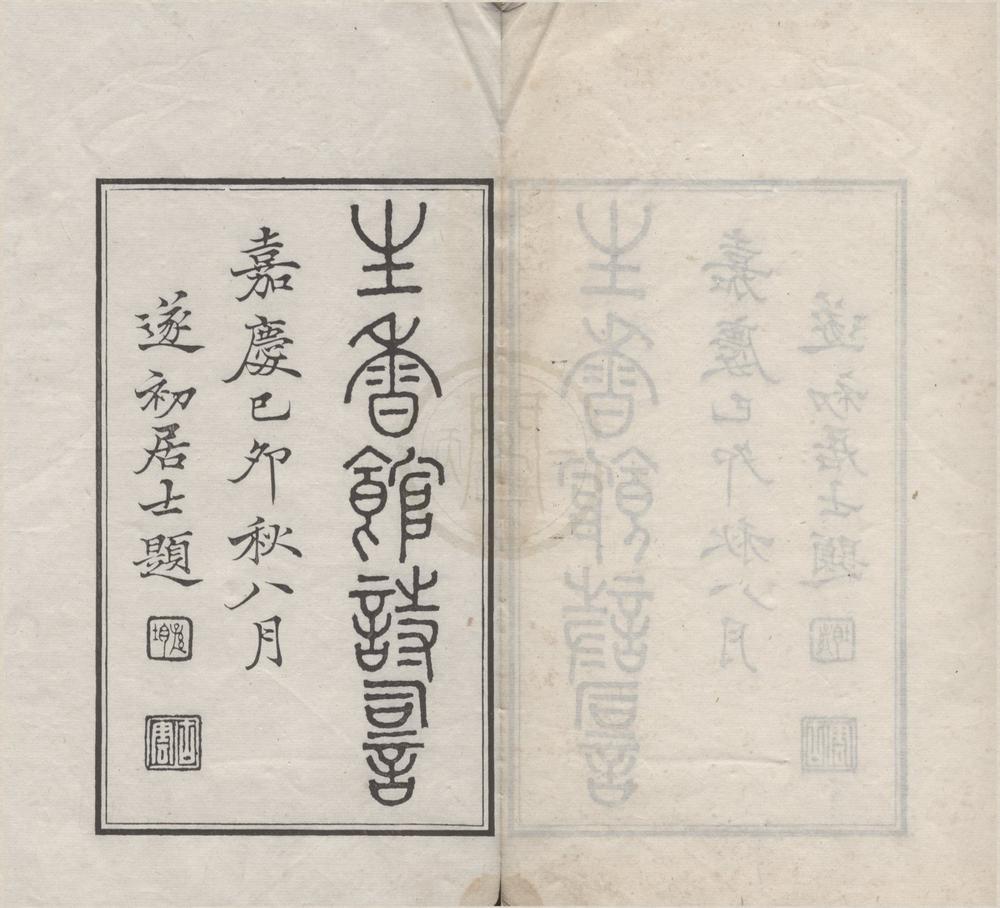 生香館詩詞
嘉慶己卯秋八月
遂初居士題